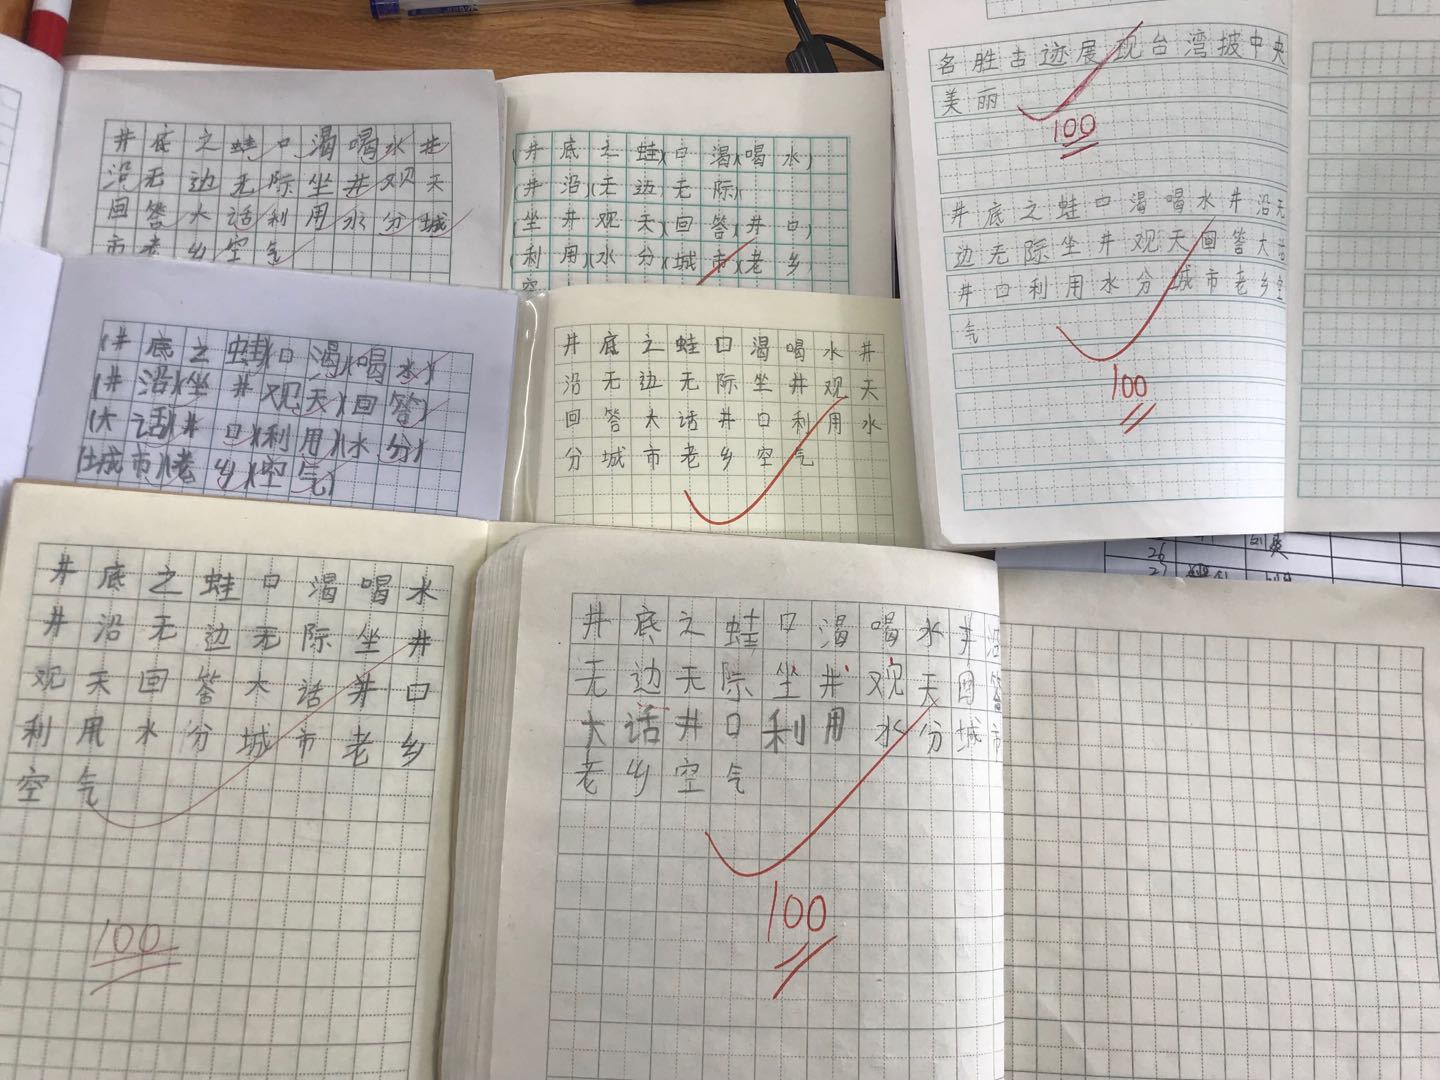 井底之蛙口渴喝水井
沿无边无际坐井观天
回答大话利用水分城
市老乡空气
(井底之蛙)(口渴)(喝水)
(井沿)(无边无际)(
(坐井观天)(回答)(井口)
(利用)(水分)(城市)(老乡
名胜古迹展现台湾披中央
美丽
100
井底之蛙口渴喝水井沿无
边无际坐井观天回答大话
井口利用水分城市老乡空
气
100
(井底之蛙)(口渴)(喝水)
(井沿)(坐井观天)(回答)
(大话)(井口)(利用)(水分)
(城市)(老乡)(空气)
井底之蛙口渴喝水井
沿无边无际坐井观天
回答大话井口利用水
分城市老乡空气
井底之蛙口渴喝水
井沿无边无际坐井
观天回答大话井口
利用水分城市老乡
空气
100
井底之蛙口渴喝水井沿
无边无际坐井观天回答
大话井口利用水分城市
老乡空气
100
26